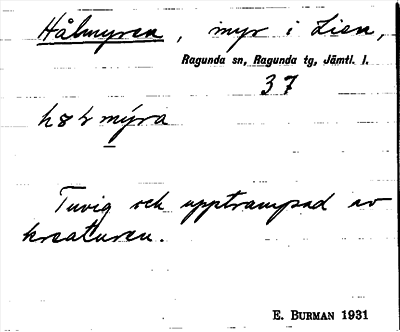 Hålmyren, myr i Lien,
Ragunda sn, Ragunda tg, Jämtl. l.
37
mýra
Tuvig och upptrampad av
kreaturen.
E. BURMAN 1931